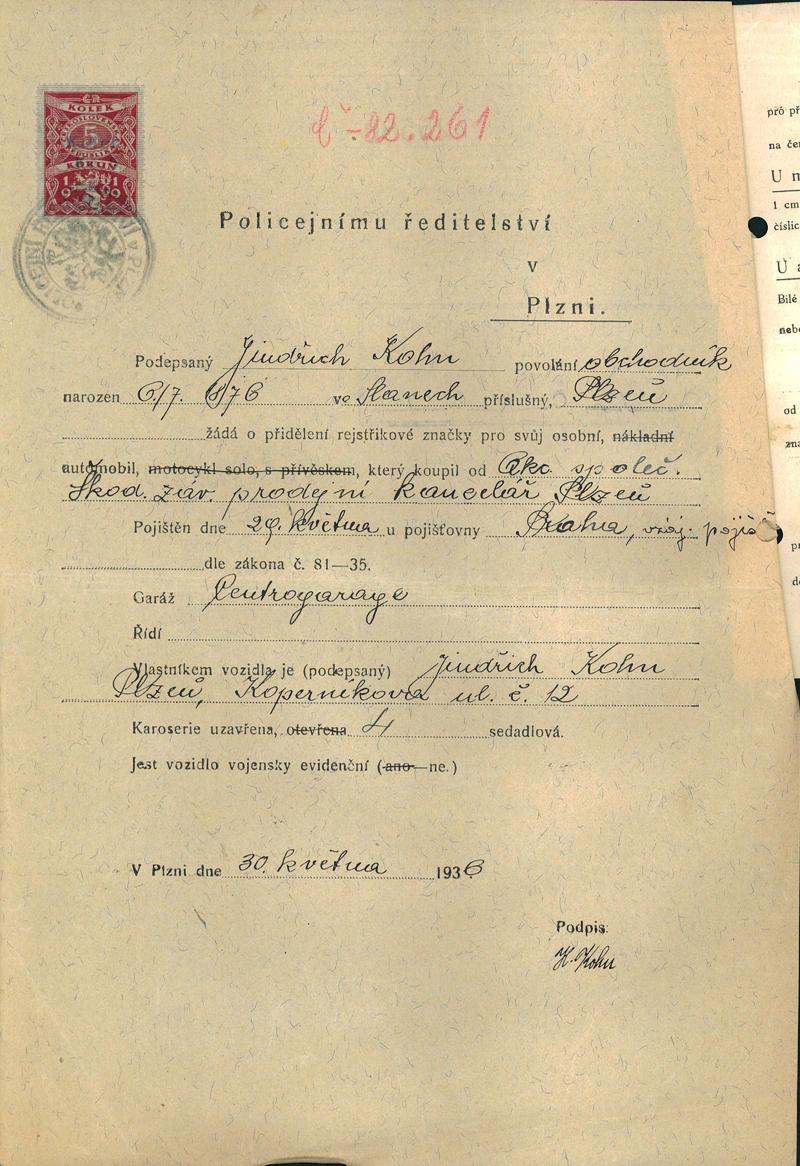 ČR
KOLEK
5
KORUN
1919
č-22.261
Policejnímu ředitelství
v
Plzni.
Podepsaný Jindřich Kohn povolání obchodník
narozen 6/7. 1876 ve Slanech příslušný, Plzeň
žádá o přidělení rejstřikové značky pro svůj osobní, nákladní
automobil, motocykl solo, s přívěskem, který koupil od Akc. společ.
Škod. záv. prodejní kancelář Plzeň
Pojištěn dne 29. května u pojišťovny Praha, vzáj. pojiš
dle zákona č. 81—35.
Garáž Centrogarage
Řídí
Vlastníkem vozidla je (podepsaný) Jindřich Kohn
Plzeň, Koperníkova ul. č. 12
Karoserie uzavřena, otevřena 4 sedadlová.
Jest vozidlo vojensky evidenční (ano—ne.)
V Plzni dne 30. května 1936
Podpis:
H. Kohn
pro př
na če
U
1 cm
číslic
U
Bílé
nebo
od
zna